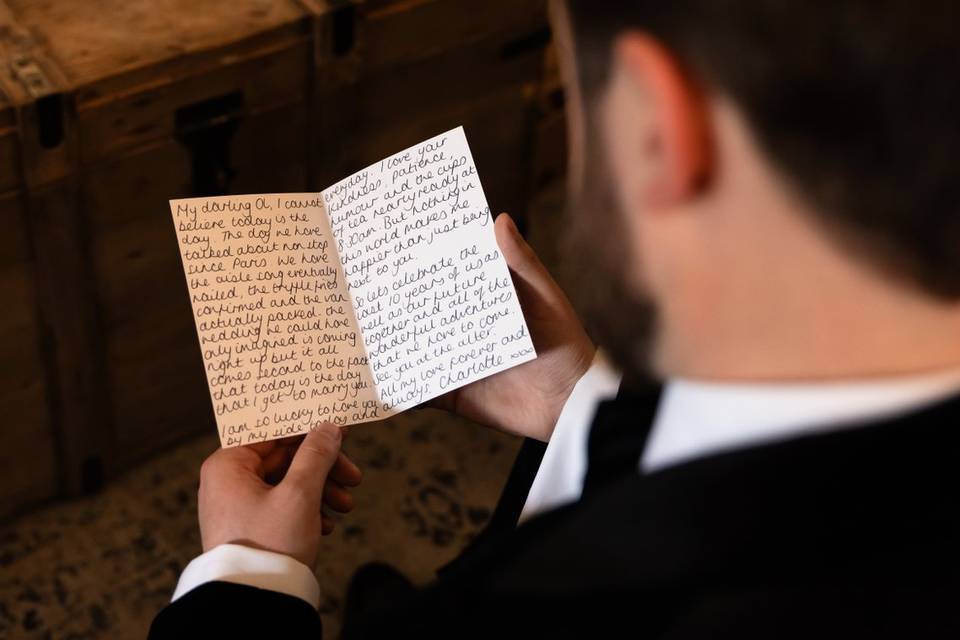 My darling Ol, I cannot
believe today is the
day. The day we have
talked about non stop
since Paris. We have
the aisle song eventually
nailed, the truffle fries
confirmed and the van
actually packed. The
wedding we could have
only imagined is coming
right up but it all
comes second to the fact
that today is the day
that I get to marry you.
I am so lucky to have you
by my side today and always.
everyday. I love your
kindness, patience,
humour and the cups
of tea nearly ready at
8.30am. But nothing in
this world makes me
happier than just being
next to you.
So lets celebrate the
last 10 years of us as
well as our future
together and all of the
wonderful adventures
that we have to come.
See you at the alter.
All my love forever and
always. Charlotte xoxo